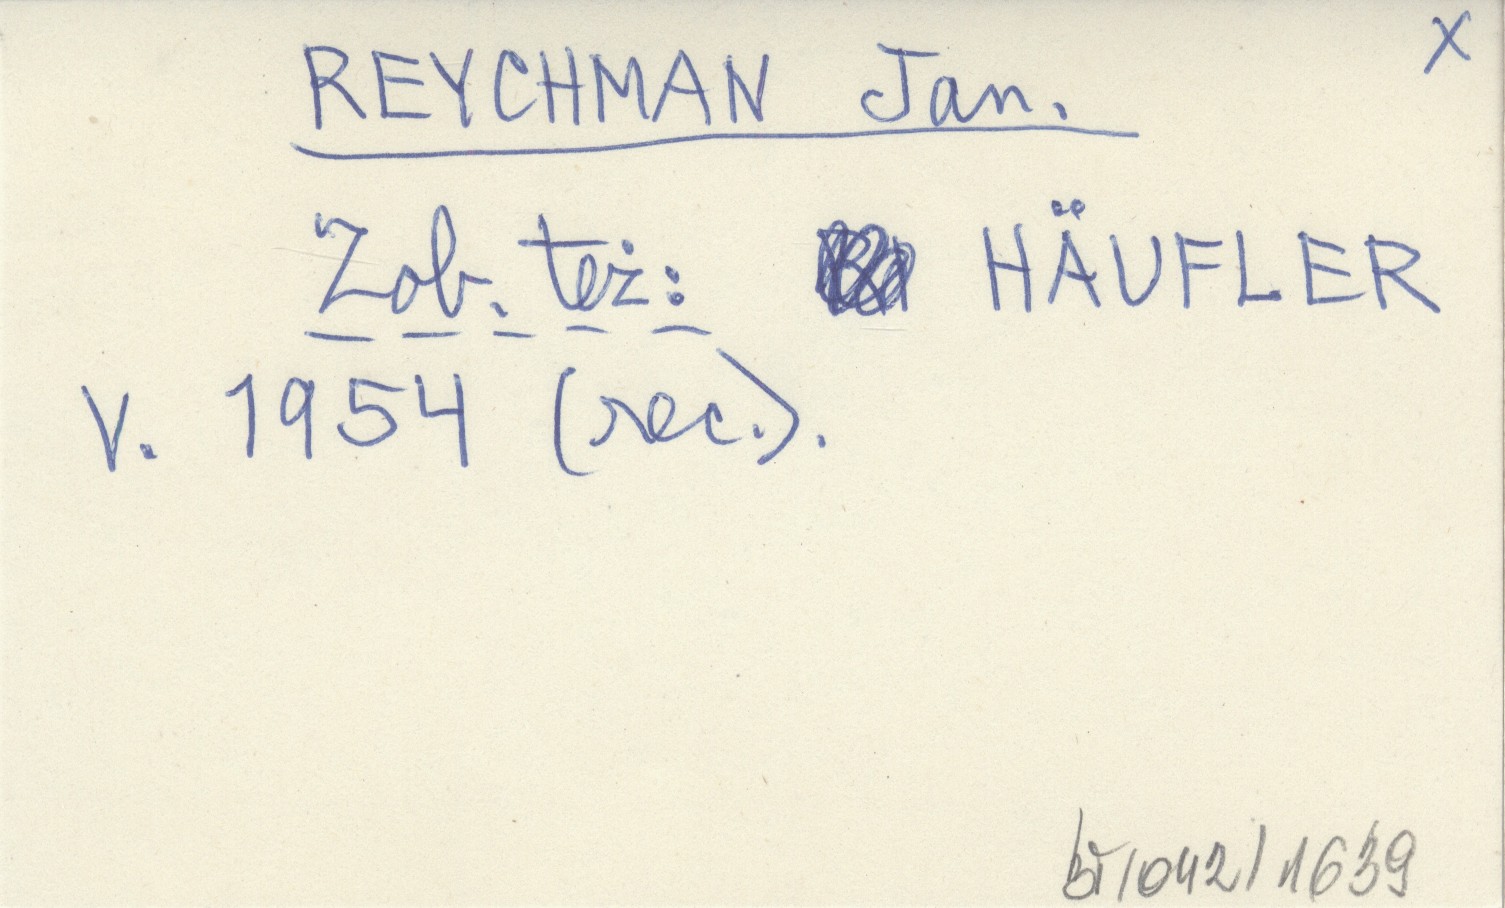 X
REYCHMAN Jan.
Zob. też: HÄUFLER
V. 1954 (rec.).
/042/1639